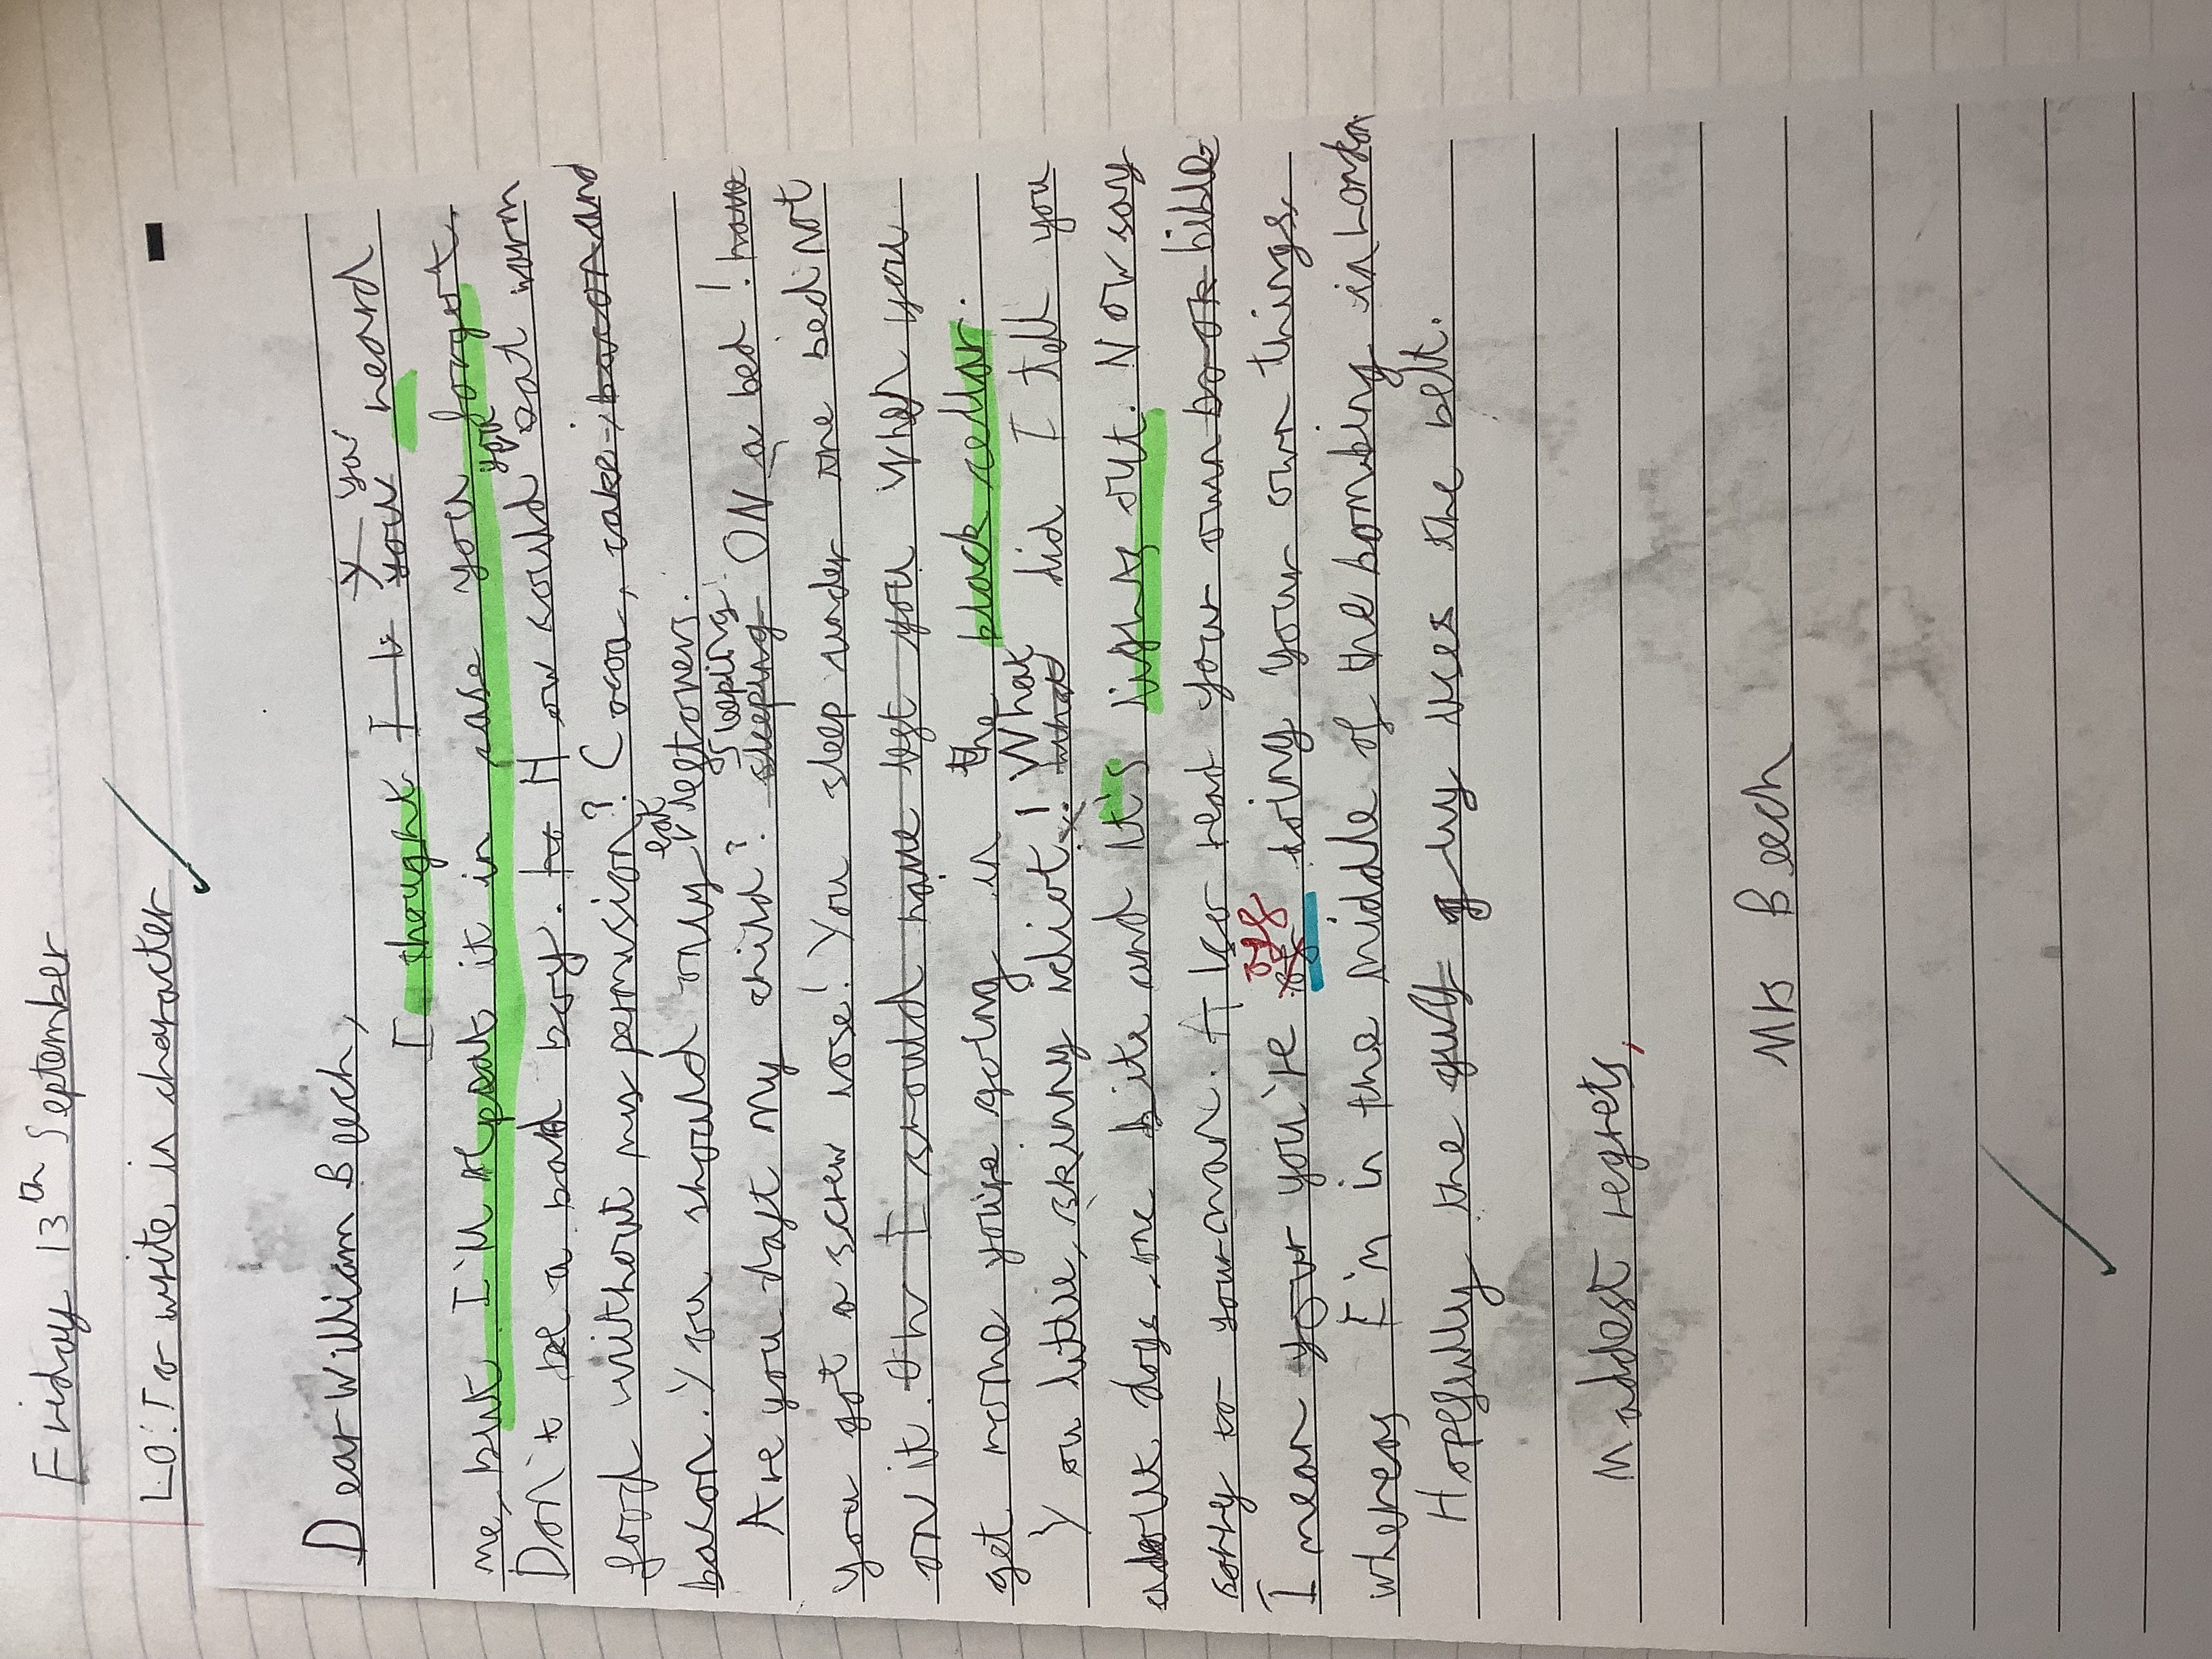 Friday 13th September
LO: To write in character
Dear William Beech,
I thought I Y you heard
me, but I'll repeat it in case you forgot.
Don't be a bad boy. How could you eat warm
food without my permission? Cocoa, cake, bacon and
bacon. You should only eat leftovers.
Are you daft my child? sleeping sleeping ON a bed! have
you got a screw lose! You sleep under the bed not
on it. the I should have left you when you
get home you're going in the black cellar.
You little, skinny idiot! What what did I tell you
about dogs, one bite and it's lights out. Now say
sorry to your mam. After read your own book bible
I mean your you're of off doing your own things,
whereas I'm in the middle of the bombing in London
Hopefully the guy uses the belt.
Maddest regrets,
Mrs Beech